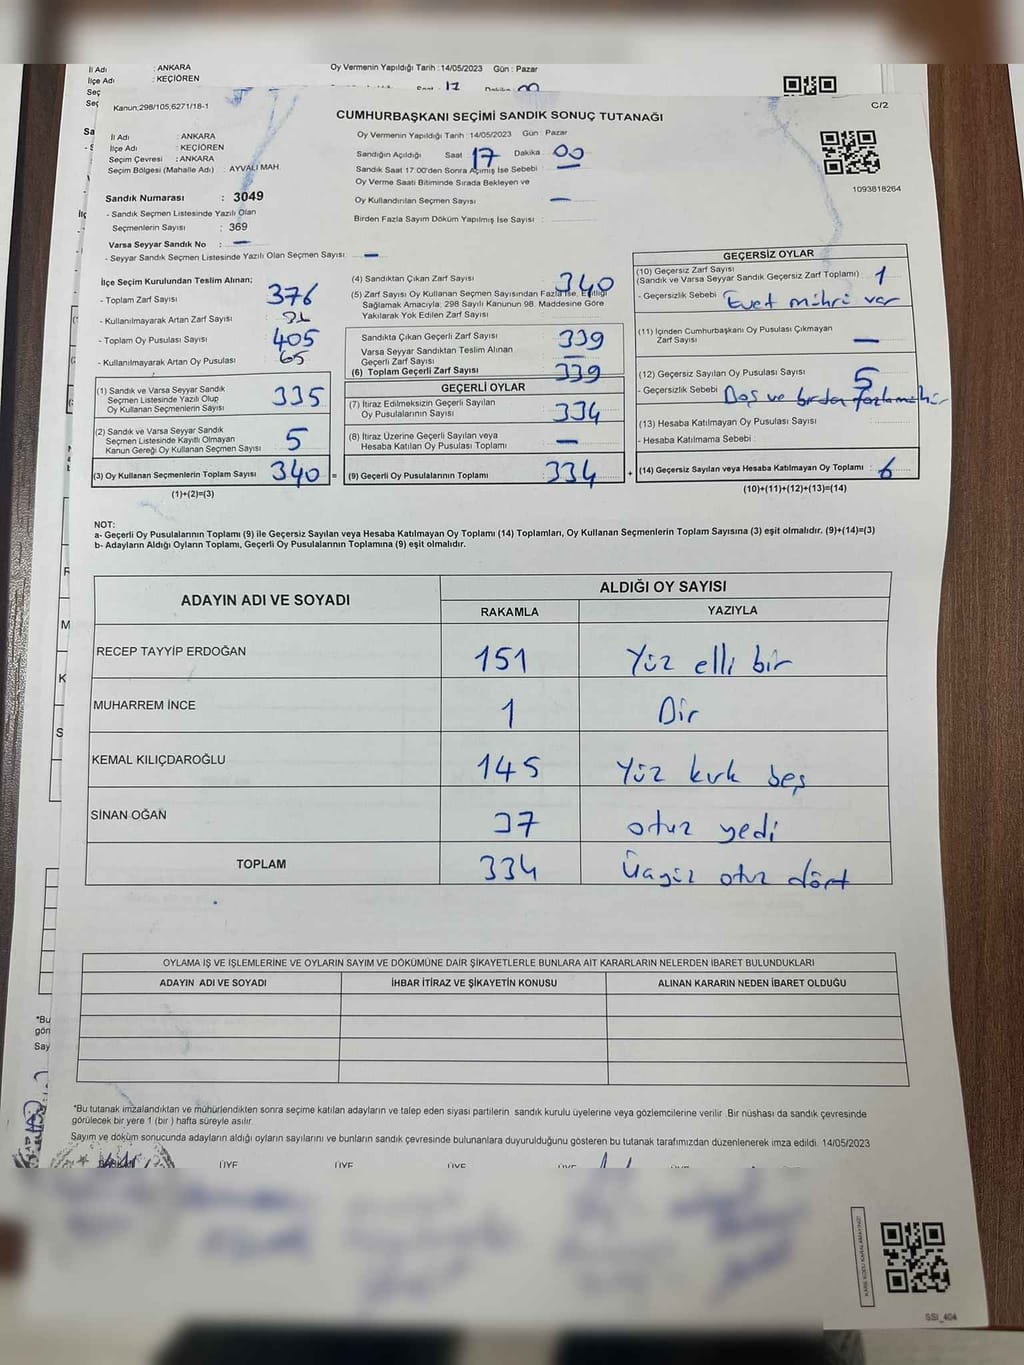 İl Adı : ANKARA
İlçe Adı : KEÇİÖREN
Oy Vermenin Yapıldığı Tarih : 14/05/2023 Gün : Pazar
Kanun;298/105,6271/18-1
C/2
CUMHURBAŞKANI SEÇİMİ SANDIK SONUÇ TUTANAĞI
İl Adı : ANKARA
İlçe Adı : KEÇİÖREN
Seçim Çevresi : ANKARA
Seçim Bölgesi (Mahalle Adı) : AYVALI MAH.
Oy Vermenin Yapıldığı Tarih :14/05/2023 Gün : Pazar
Sandığın Açıldığı Saat : 17 Dakika : 00
Sandık Saat 17:00'den Sonra Açımış İse Sebebi : —
Oy Verme Saati Bitiminde Sırada Bekleyen ve
Oy Kullandırılan Seçmen Sayısı : —
Birden Fazla Sayım Döküm Yapılmış İse Sayısı :
1093818264
Sandık Numarası : 3049
- Sandık Seçmen Listesinde Yazılı Olan
Seçmenlerin Sayısı : 369
Varsa Seyyar Sandık No : —
- Seyyar Sandık Seçmen Listesinde Yazılı Olan Seçmen Sayısı: —
İlçe Seçim Kurulundan Teslim Alınan;
- Toplam Zarf Sayısı 376
- Kullanılmayarak Artan Zarf Sayısı
- Toplam Oy Pusulası Sayısı 405
- Kullanılmayarak Artan Oy Pusulası 65
(1) Sandık ve Varsa Seyyar Sandık
Seçmen Listesinde Yazılı Olup
Oy Kullanan Seçmenlerin Sayısı 335
(2) Sandık ve Varsa Seyyar Sandık
Seçmen Listesinde Kayıtlı Olmayan
Kanun Gereği Oy Kullanan Seçmen Sayısı 5
(3) Oy Kullanan Seçmenlerin Toplam Sayısı 340 =
(1)+(2)=(3)
(4) Sandıktan Çıkan Zarf Sayısı 340
(5) Zarf Sayısı Oy Kullanan Seçmen Sayısından Fazla İse, Eşitliği
Sağlamak Amacıyla, 298 Sayılı Kanunun 98. Maddesine Göre
Yakılarak Yok Edilen Zarf Sayısı
Sandıkta Çıkan Geçerli Zarf Sayısı 339
Varsa Seyyar Sandıktan Teslim Alınan
Geçerli Zarf Sayısı —
(6) Toplam Geçerli Zarf Sayısı 339
GEÇERLİ OYLAR
(7) İtiraz Edilmeksizin Geçerli Sayılan
Oy Pusulalarının Sayısı 334
(8) İtiraz Üzerine Geçerli Sayılan veya
Hesaba Katılan Oy Pusulası Toplamı —
(9) Geçerli Oy Pusulalarının Toplamı 334 +
GEÇERSİZ OYLAR
(10) Geçersiz Zarf Sayısı
(Sandık ve Varsa Seyyar Sandık Geçersiz Zarf Toplamı) : 1
- Geçersizlik Sebebi : Evet mühri var
(11) İçinden Cumhurbaşkanı Oy Pusulası Çıkmayan
Zarf Sayısı —
(12) Geçersiz Sayılan Oy Pusulası Sayısı : 5
- Geçersizlik Sebebi : Boş ve birden fazla mühür
(13) Hesaba Katılmayan Oy Pusulası Sayısı :
- Hesaba Katılmama Sebebi :
(14) Geçersiz Sayılan veya Hesaba Katılmayan Oy Toplamı : 6
(10)+(11)+(12)+(13)=(14)
NOT:
a- Geçerli Oy Pusulalarının Toplamı (9) ile Geçersiz Sayılan veya Hesaba Katılmayan Oy Toplamı (14) Toplamları, Oy Kullanan Seçmenlerin Toplam Sayısına (3) eşit olmalıdır. (9)+(14)=(3)
b- Adayların Aldığı Oyların Toplamı, Geçerli Oy Pusulalarının Toplamına (9) eşit olmalıdır.
ADAYIN ADI VE SOYADI ALDIĞI OY SAYISI
RAKAMLA YAZIYLA
RECEP TAYYİP ERDOĞAN 151 Yüz elli bir
MUHARREM İNCE 1 Bir
KEMAL KILIÇDAROĞLU 145 Yüz kırk beş
SİNAN OĞAN 37 otuz yedi
TOPLAM 334 Üçyüz otuz dört
OYLAMA İŞ VE İŞLEMLERİNE VE OYLARIN SAYIM VE DÖKÜMÜNE DAİR ŞİKAYETLERLE BUNLARA AİT KARARLARIN NELERDEN İBARET BULUNDUKLARI
ADAYIN ADI VE SOYADI İHBAR İTİRAZ VE ŞİKAYETİN KONUSU ALINAN KARARIN NEDEN İBARET OLDUĞU
*Bu tutanak imzalandıktan ve mühürlendikten sonra seçime katılan adayların ve talep eden siyasi partilerin sandık kurulu üyelerine veya gözlemcilerine verilir. Bir nüshası da sandık çevresinde
görülecek bir yere 1 (bir ) hafta süreyle asılır.
Sayım ve döküm sonucunda adayların aldığı oyların sayılarını ve bunların sandık çevresinde bulunanlara duyurulduğunu gösteren bu tutanak tarafımızdan düzenlenerek imza edildi. 14/05/2023
BAŞKAN ÜYE ÜYE ÜYE ÜYE ÜYE
SSI_404